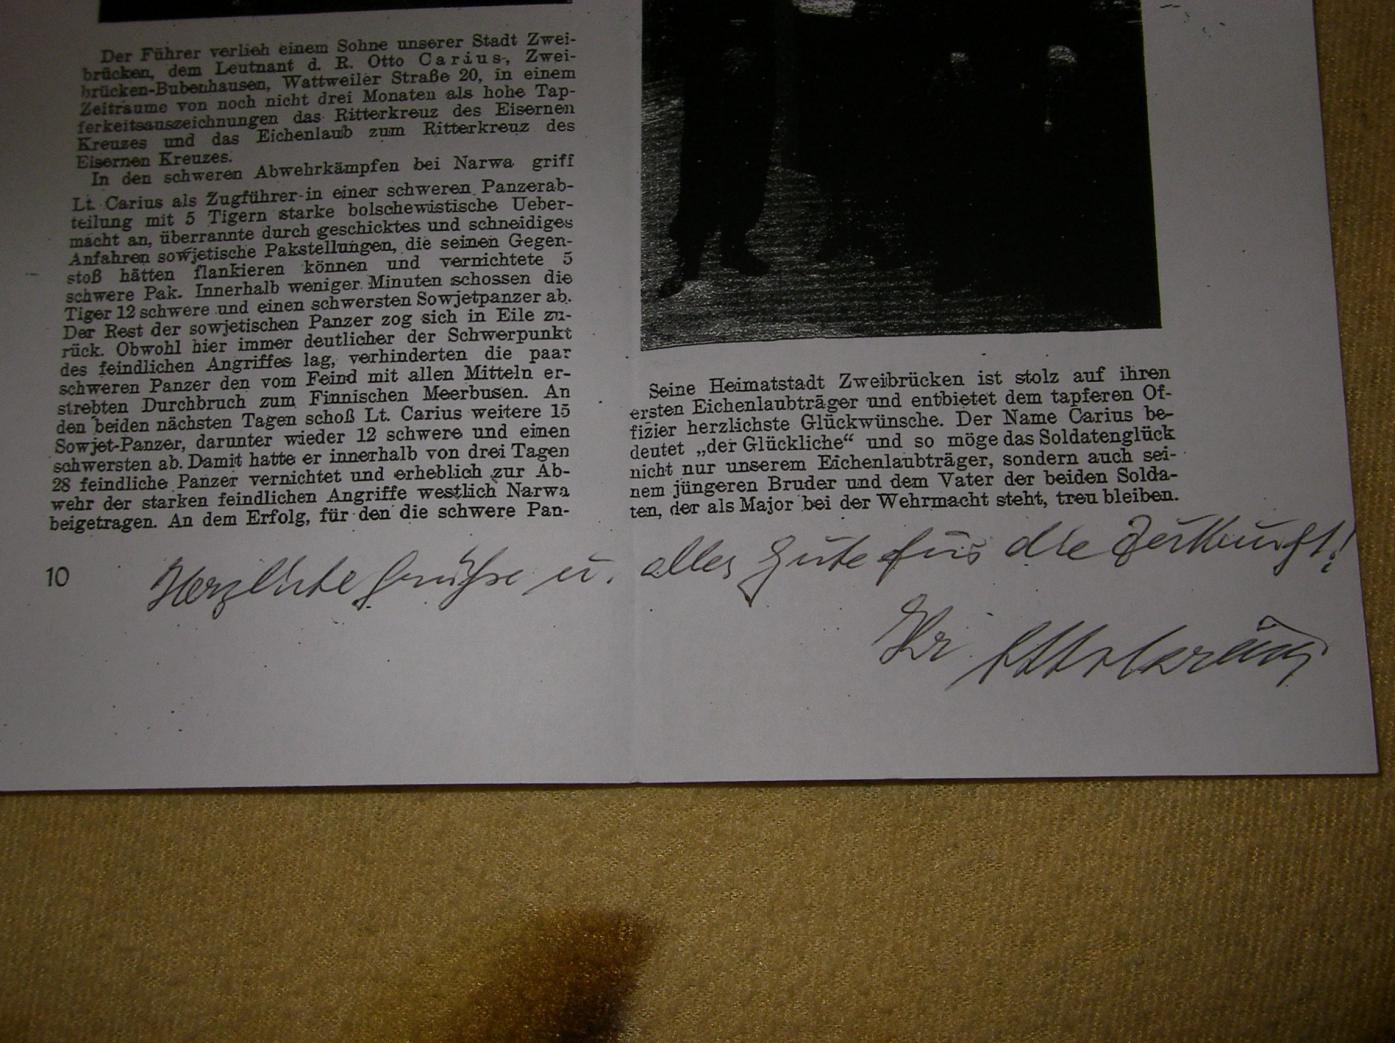 Der Führer verlieh einem Sohne unserer Stadt Zwei-
brücken, dem Leutnant d. R. Otto Carius, Zwei-
brücken-Bubenhausen, Wattweiler Straße 20, in einem
Zeitraume von noch nicht drei Monaten als hohe Tap-
ferkeitsauszeichnungen das Ritterkreuz des Eisernen
Kreuzes und das Eichenlaub zum Ritterkreuz des
Eisernen Kreuzes.
In den schweren Abwehrkämpfen bei Narwa griff
Lt. Carius als Zugführer in einer schweren Panzerab-
teilung mit 5 Tigern starke bolschewistische Ueber-
macht an, überrannte durch geschicktes und schneidiges
Anfahren sowjetische Pakstellungen, die seinen Gegen-
stoß hätten flankieren können und vernichtete 5
schwere Pak. Innerhalb weniger Minuten schossen die
Tiger 12 schwere und einen schwersten Sowjetpanzer ab.
Der Rest der sowjetischen Panzer zog sich in Eile zu-
rück. Obwohl hier immer deutlicher der Schwerpunkt
des feindlichen Angriffes lag, verhinderten die paar
schweren Panzer den vom Feind mit allen Mitteln er-
strebten Durchbruch zum Finnischen Meerbusen. An
den beiden nächsten Tagen schoß Lt. Carius weitere 15
Sowjet-Panzer, darunter wieder 12 schwere und einen
schwersten ab. Damit hatte er innerhalb von drei Tagen
28 feindliche Panzer vernichtet und erheblich zur Ab-
wehr der starken feindlichen Angriffe westlich Narwa
beigetragen. An dem Erfolg, für den die schwere Pan-
10
Seine Heimatstadt Zweibrücken ist stolz auf ihren
ersten Eichenlaubträger und entbietet dem tapferen Of-
fizier herzlichste Glückwünsche. Der Name Carius be-
deutet „der Glückliche“ und so möge das Soldatenglück
nicht nur unserem Eichenlaubträger, sondern auch sei-
nem jüngeren Bruder und dem Vater der beiden Solda-
ten, der als Major bei der Wehrmacht steht, treu bleiben.
Herzliche Grüße u. alles Gute für die Zukunft!
Ihr Otto Carius